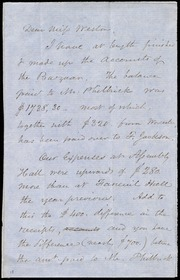 Dear Miss Weston
I have at length finished
& made up the Accounts of
the Bazaar. The balance
paid to Mr Philbrick was
$1728,30 — most of which
together with $320 from
has been paid over to F. Jackson
Our Expenses at Assembly
Hall were upwards of $250
more than at Faneuil Hall
the year previous. Add to
this the $400, difference in the
receipts, and you have
the difference (nearly $700) between
the amt paid to Mr Philbrick